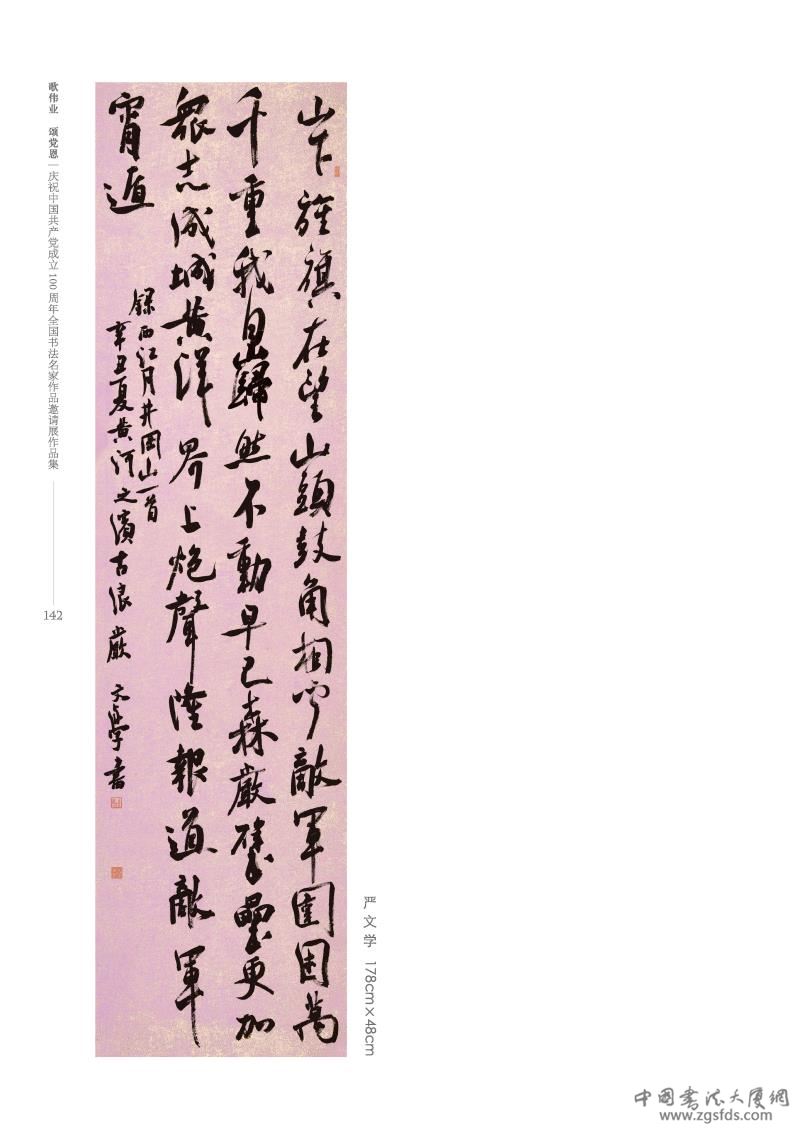 歌伟业 颂党恩|庆祝中国共产党成立100周年全国书法名家作品邀请展作品集
142
山下旌旗在望山頭鼓角相聞敵軍圍困萬
千重我自巋然不動早已森嚴壁壘更加
衆志成城黄洋界上炮聲隆報道敵軍
宵遁
録西江月井岡山一首
辛丑夏黄河之濱古浪嚴文學書
严文学 178cm×48cm
中国書法大厦網
www.zgsfds.com